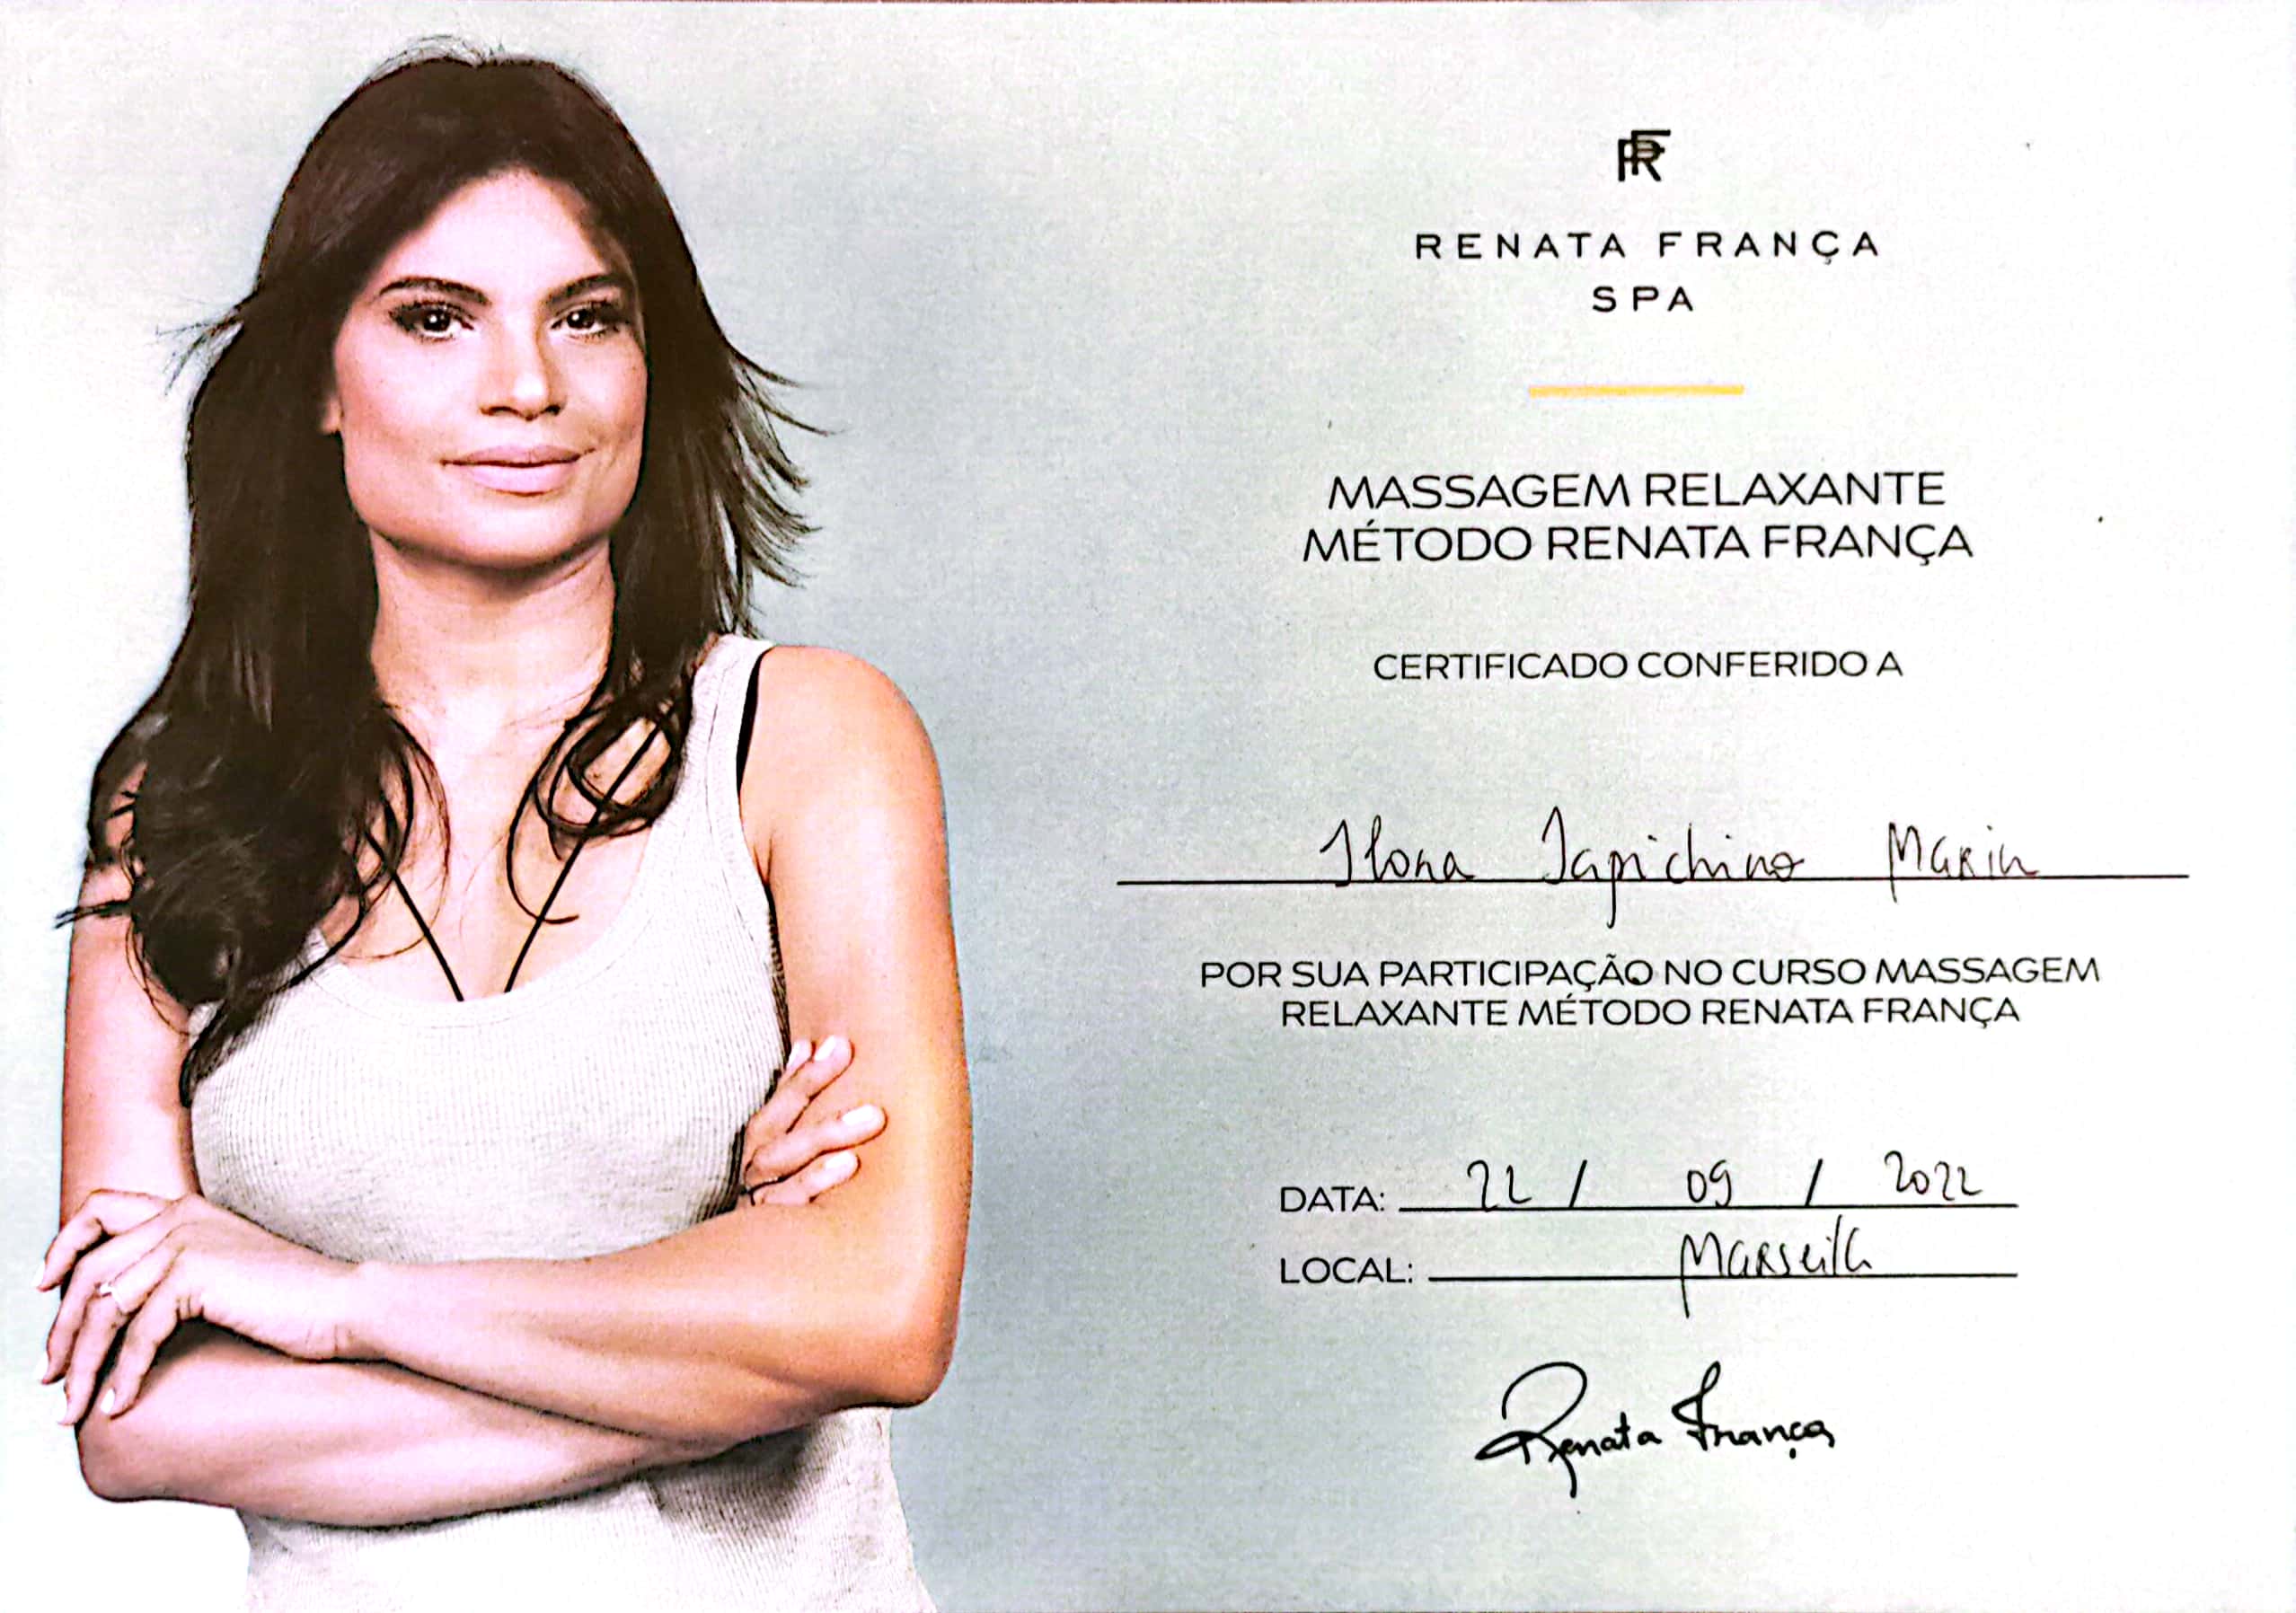 RF
RENATA FRANÇA
SPA
MASSAGEM RELAXANTE
MÉTODO RENATA FRANÇA
CERTIFICADO CONFERIDO A
Ilona Iapichino Marin
POR SUA PARTICIPAÇÃO NO CURSO MASSAGEM
RELAXANTE MÉTODO RENATA FRANÇA
DATA: 22 / 09 / 2022
LOCAL: Marseilla
Renata França